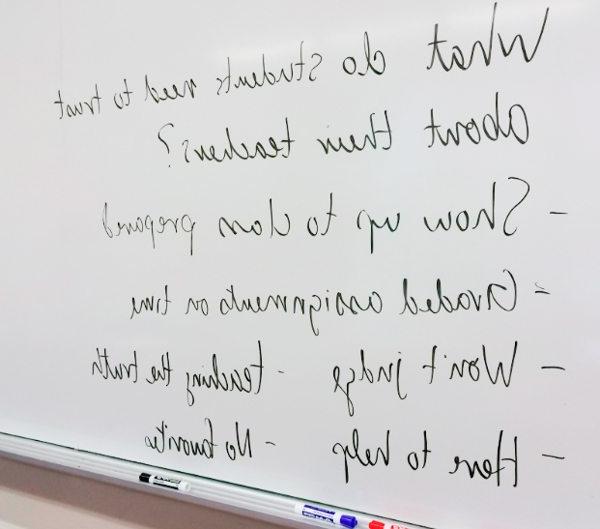 What do students need to trust
about their teachers?
- Show up to class prepared
- Graded assignments on time
- Won't judge - teaching the truth
- Here to help - No favorites